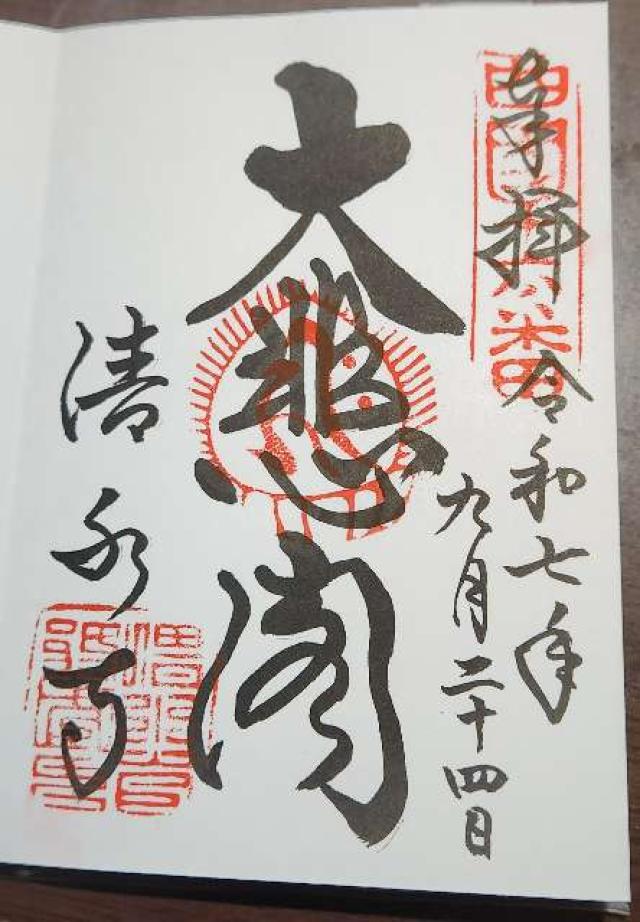 奉拝
令和七年
九月二十四日
大悲閣
清水寺